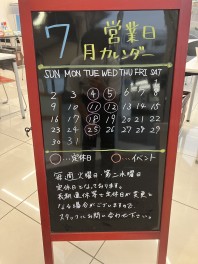 7月 営業日カレンダー
SUN MON TUE WED THU FRI SAT
1
2 3 4 5 6 7 8
9 10 11 12 13 14 15
16 17 18 19 20 21 22
23 24 25 26 27 28 29
30 31
○…定休日 ○…イベント
毎週火曜日・第二水曜日
定休日となっております。
長期連休等で定休日が変更と
なる場合がございますので、
スタッフにお問い合わせ下さい。